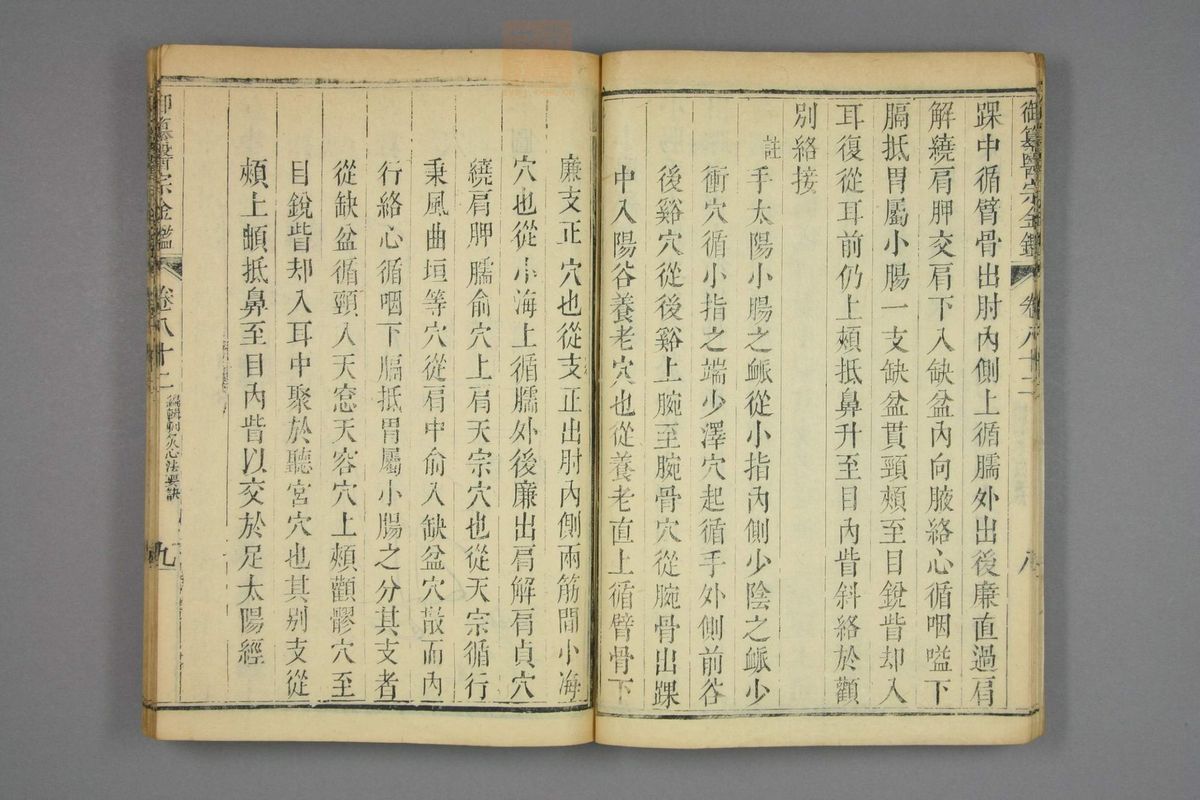 御纂醫宗金鑑 卷八十二 八
踝中循臂骨出肘內側上循臑外出後廉直過肩
解繞肩胛交肩下入缺盆內向腋絡心循咽嗌下
膈抵胃屬小腸一支缺盆貫頸頰至目銳眥却入
耳復從耳前仍上頰抵鼻升至目內眥斜絡於顴
別絡接
註手太陽小腸之脈從小指內側少陰之脈少
衝穴循小指之端少澤穴起循手外側前谷
後谿穴從後谿上腕至腕骨穴從腕骨出踝
中入陽谷養老穴也從養老直上循臂骨下
廉支正穴也從支正出肘內側兩筋間小海
穴也從小海上循臑外後廉出肩解肩貞穴
繞肩胛臑俞穴上肩天宗穴也從天宗循行
秉風曲垣等穴從肩中俞入缺盆穴散而內
行絡心循咽下膈抵胃屬小腸之分其支者
從缺盆循頸入天窓天容穴上頰顴髎穴至
目銳眥却入耳中聚於聽宮穴也其別支從
頰上䪼抵鼻至目內眥以交於足太陽經
御纂醫宗金鑑 卷八十二 編輯刺灸心法要訣 九